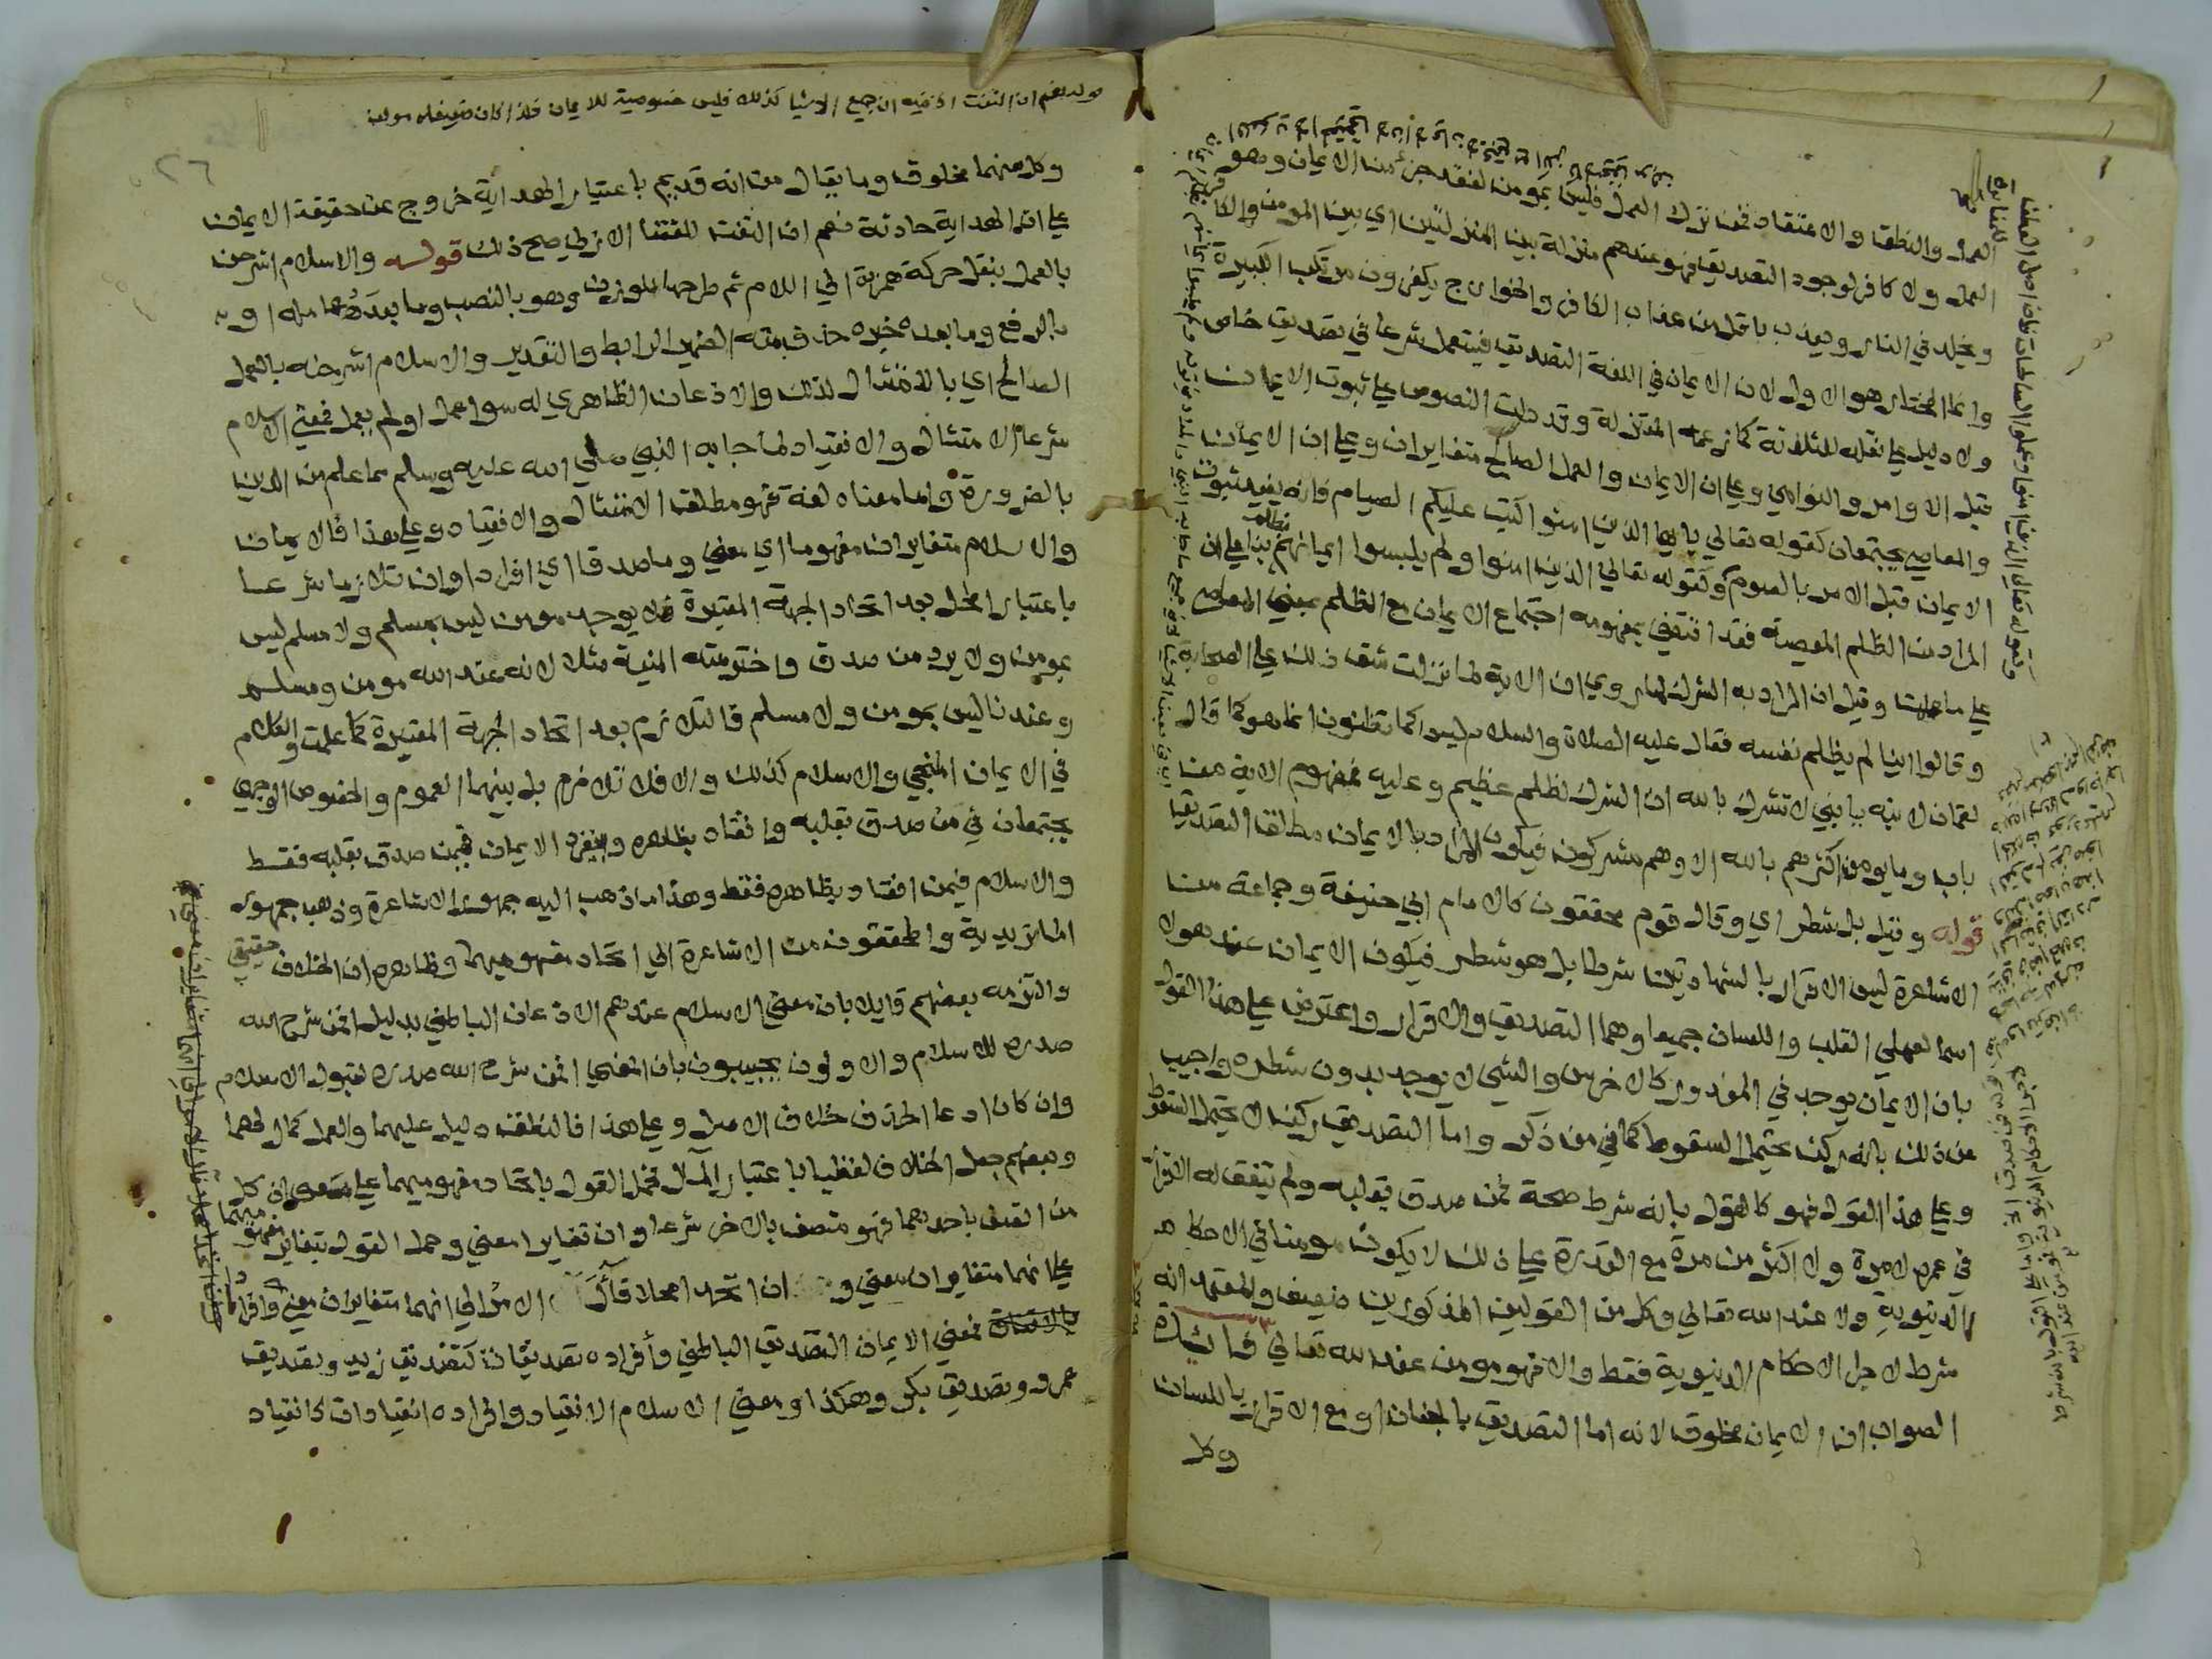 العمل والنطق والاعتقاد فمن ترك العمل فليس بمومن لفقد جزء من الايمان وهو
العمل ولا كافر لوجود التصديق فهو عندهم منزلة بين المنزلتين اي بين المومن والكافر
ويخلد في النار ويعذب باقل من عذاب الكافر والخوارج يكفرون مرتكب الكبيرة
وانما المختار هو الاول لان الايمان في اللغة التصديق فيستعمل شرعا في تصديق خاص
ولا دليل على نقله للثلاثة كما زعمه المعتزلة وقد دلت النصوص على ثبوت الايمان
قبل الاوامر والنواهي وعلى ان الايمان والعمل الصالح متغايران وعلى ان الايمان
والمعاصي يجتمعان كقوله تعالى يايها الذين امنوا كتب عليكم الصيام فانه يفيد ثبوت
الايمان قبل الامر بالصوم وكقوله تعالى الذين امنوا ولم يلبسوا ايمانهم بظلم بناء على ان
المراد من الظلم المعصية فقد اقتضى بمفهومه اجتماع الايمان مع الظلم بمعنى المعاصي
على ما علمت وقيل ان المراد به الشرك لما روي ان الاية لما نزلت شق ذلك على الصحابة
وقالوا اينا لم يظلم نفسه فقال عليه الصلاة والسلام ليس كما تظنون انما هو كما قال
لقمان لابنه يا بني لا تشرك بالله ان الشرك لظلم عظيم وعليه فمفهوم الاية من
باب وما يومن اكثرهم بالله الا وهم مشركون فيكون المراد بالايمان مطلق التصديق
قوله وقيل بل شطر اي وقال قوم محققون كالامام ابي حنيفة وجماعة من
الاشاعرة ليس الاقرار بالشهادتين شرطا بل هو شطر فيكون الايمان عند هولاء
اسما لعملي القلب واللسان جميعا وهما التصديق والاقرار واعترض على هذا القول
بان الايمان يوجد في المعذور كالاخرس والشي لا يوجد بدون شطره واجيب
عن ذلك بانه ركن يحتمل السقوط كما في من ذكر واما التصديق ركن لا يحتمل السقوط
وعلى هذا القول فهو كالقول بانه شرط صحة فمن صدق بقلبه ولم يتفق له الاقرار
في عمره لا مرة ولا اكثر من مرة مع القدرة على ذلك لا يكون مومنا في الاحكام
الدنيوية ولا عند الله تعالى وكل من القولين المذكورين ضعيف والمعتمد انه
شرط لاجل الاحكام الدنيوية فقط والا فهو مومن عند الله تعالى فائدة
الصواب ان الايمان مخلوق لانه اما التصديق بالجنان او مع الاقرار باللسان
وكل
وقوله تعالى ان الذين امنوا وعملوا الصالحات فان اصل العطف
للمغايرة
٢٦
وكل منهما مخلوق وما يقال من انه قديم باعتبار الهداية خروج عن حقيقة الايمان
على ان الهداية حادثة نعم ان التفت للقضا الازلي صح ذلك قوله والاسلام اشرحن
بالعمل بنقل حركة همزة الى اللام ثم طرحها للوزن وهو بالنصب وما بعده عامله او
بالرفع وما بعده خبره حذف منه الضمير الرابط والتقدير والاسلام اشرحنه بالعمل
الصالح اي بالامتثال لذلك والاذعان الظاهري له سوا عمل او لم يعمل فمعنى الاسلام
شرعا الامتثال والانقياد لما جا به النبي صلى الله عليه وسلم مما علم من الدين
بالضرورة واما معناه لغة فهو مطلق الامتثال والانقياد وعلى هذا فالايمان
والاسلام متغايران مفهوما اي معنى وماصدقا اي افرادا وان تلازما شرعا
باعتبار المحل بعد اتحاد الجهة المعتبرة فلا يوجد مومن ليس بمسلم ولا مسلم ليس
بمومن ولا يرد من صدق واخترمته المنية مثلا لانه عند الله مومن ومسلم
وعندنا ليس بمومن ولا مسلم فالتلازم بعد اتحاد الجهة المعتبرة كما علمت والكلام
في الايمان المنجي والاسلام كذلك والا فلا تلازم بل بينهما العموم والخصوص الوجهي
يجتمعان في من صدق بقلبه وانقاد بظاهره وينفرد الايمان فيمن صدق بقلبه فقط
والاسلام فيمن انقاد بظاهره فقط وهذا ما ذهب اليه جمهور الاشاعرة وذهب جمهور
الماتريدية والمحققون من الاشاعرة الى اتحاد مفهوميهما وظاهره ان الخلاف حقيقي
والتزمه بعضهم قايلا بان معنى الاسلام عندهم الاذعان الباطني بدليل افمن شرح الله
صدره للاسلام والاولون يجيبون بان المعنى افمن شرح الله صدره لقبول الاسلام
وان كان ادعا الحذف خلاف الاصل وعلى هذا فالنطق دليل عليهما والعمل كمال لهما
وبعضهم جعل الخلاف لفظيا باعتبار المآل فحمل القول باتحاد مفهوميهما على معنى ان كل
من اتصف باحدهما فهو متصف بالاخر شرعا وان تغايرا معنى وحمل القول بتغاير مفهوميهما
على انهما متغايران معنى وان اتحدا محلا قال الامر الى انهما متغايران معنى وافرادا
فمعنى الايمان التصديق الباطني وأفراده تصديقات كتصديق زيد وتصديق
عمرو وتصديق بكر وهكذا ومعنى الاسلام الانقياد وافراده انقيادات كانقياد